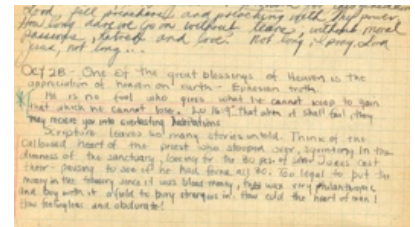 Lord, fill preachers and preaching with thy power.
How long dare we go on without tears, without moral
passions, hatred and love? Not long, I pray, Lord
Jesus, not long...
Oct 28 - One of the great blessings of Heaven is the
appreciation of heaven on earth - Ephesian truth.
He is no fool who gives what he cannot keep to gain
that which he cannot lose. Lu 16:9 "that when it shall fail, they
may receive you into everlasting habitations
Scripture leaves so many stories untold. Think of the
calloused heart of the priest who stooped over, squinting in the
dimness of the sanctuary, looking for the 30 pcs. of silver Judas cast
there - pausing to see if he had found all 30. Too legal to put the
money in the treasury since it was blood money, they was very philanthropic
and buy with it a field to bury strangers in. How cold the heart of men!
How feelingless and obdurate!